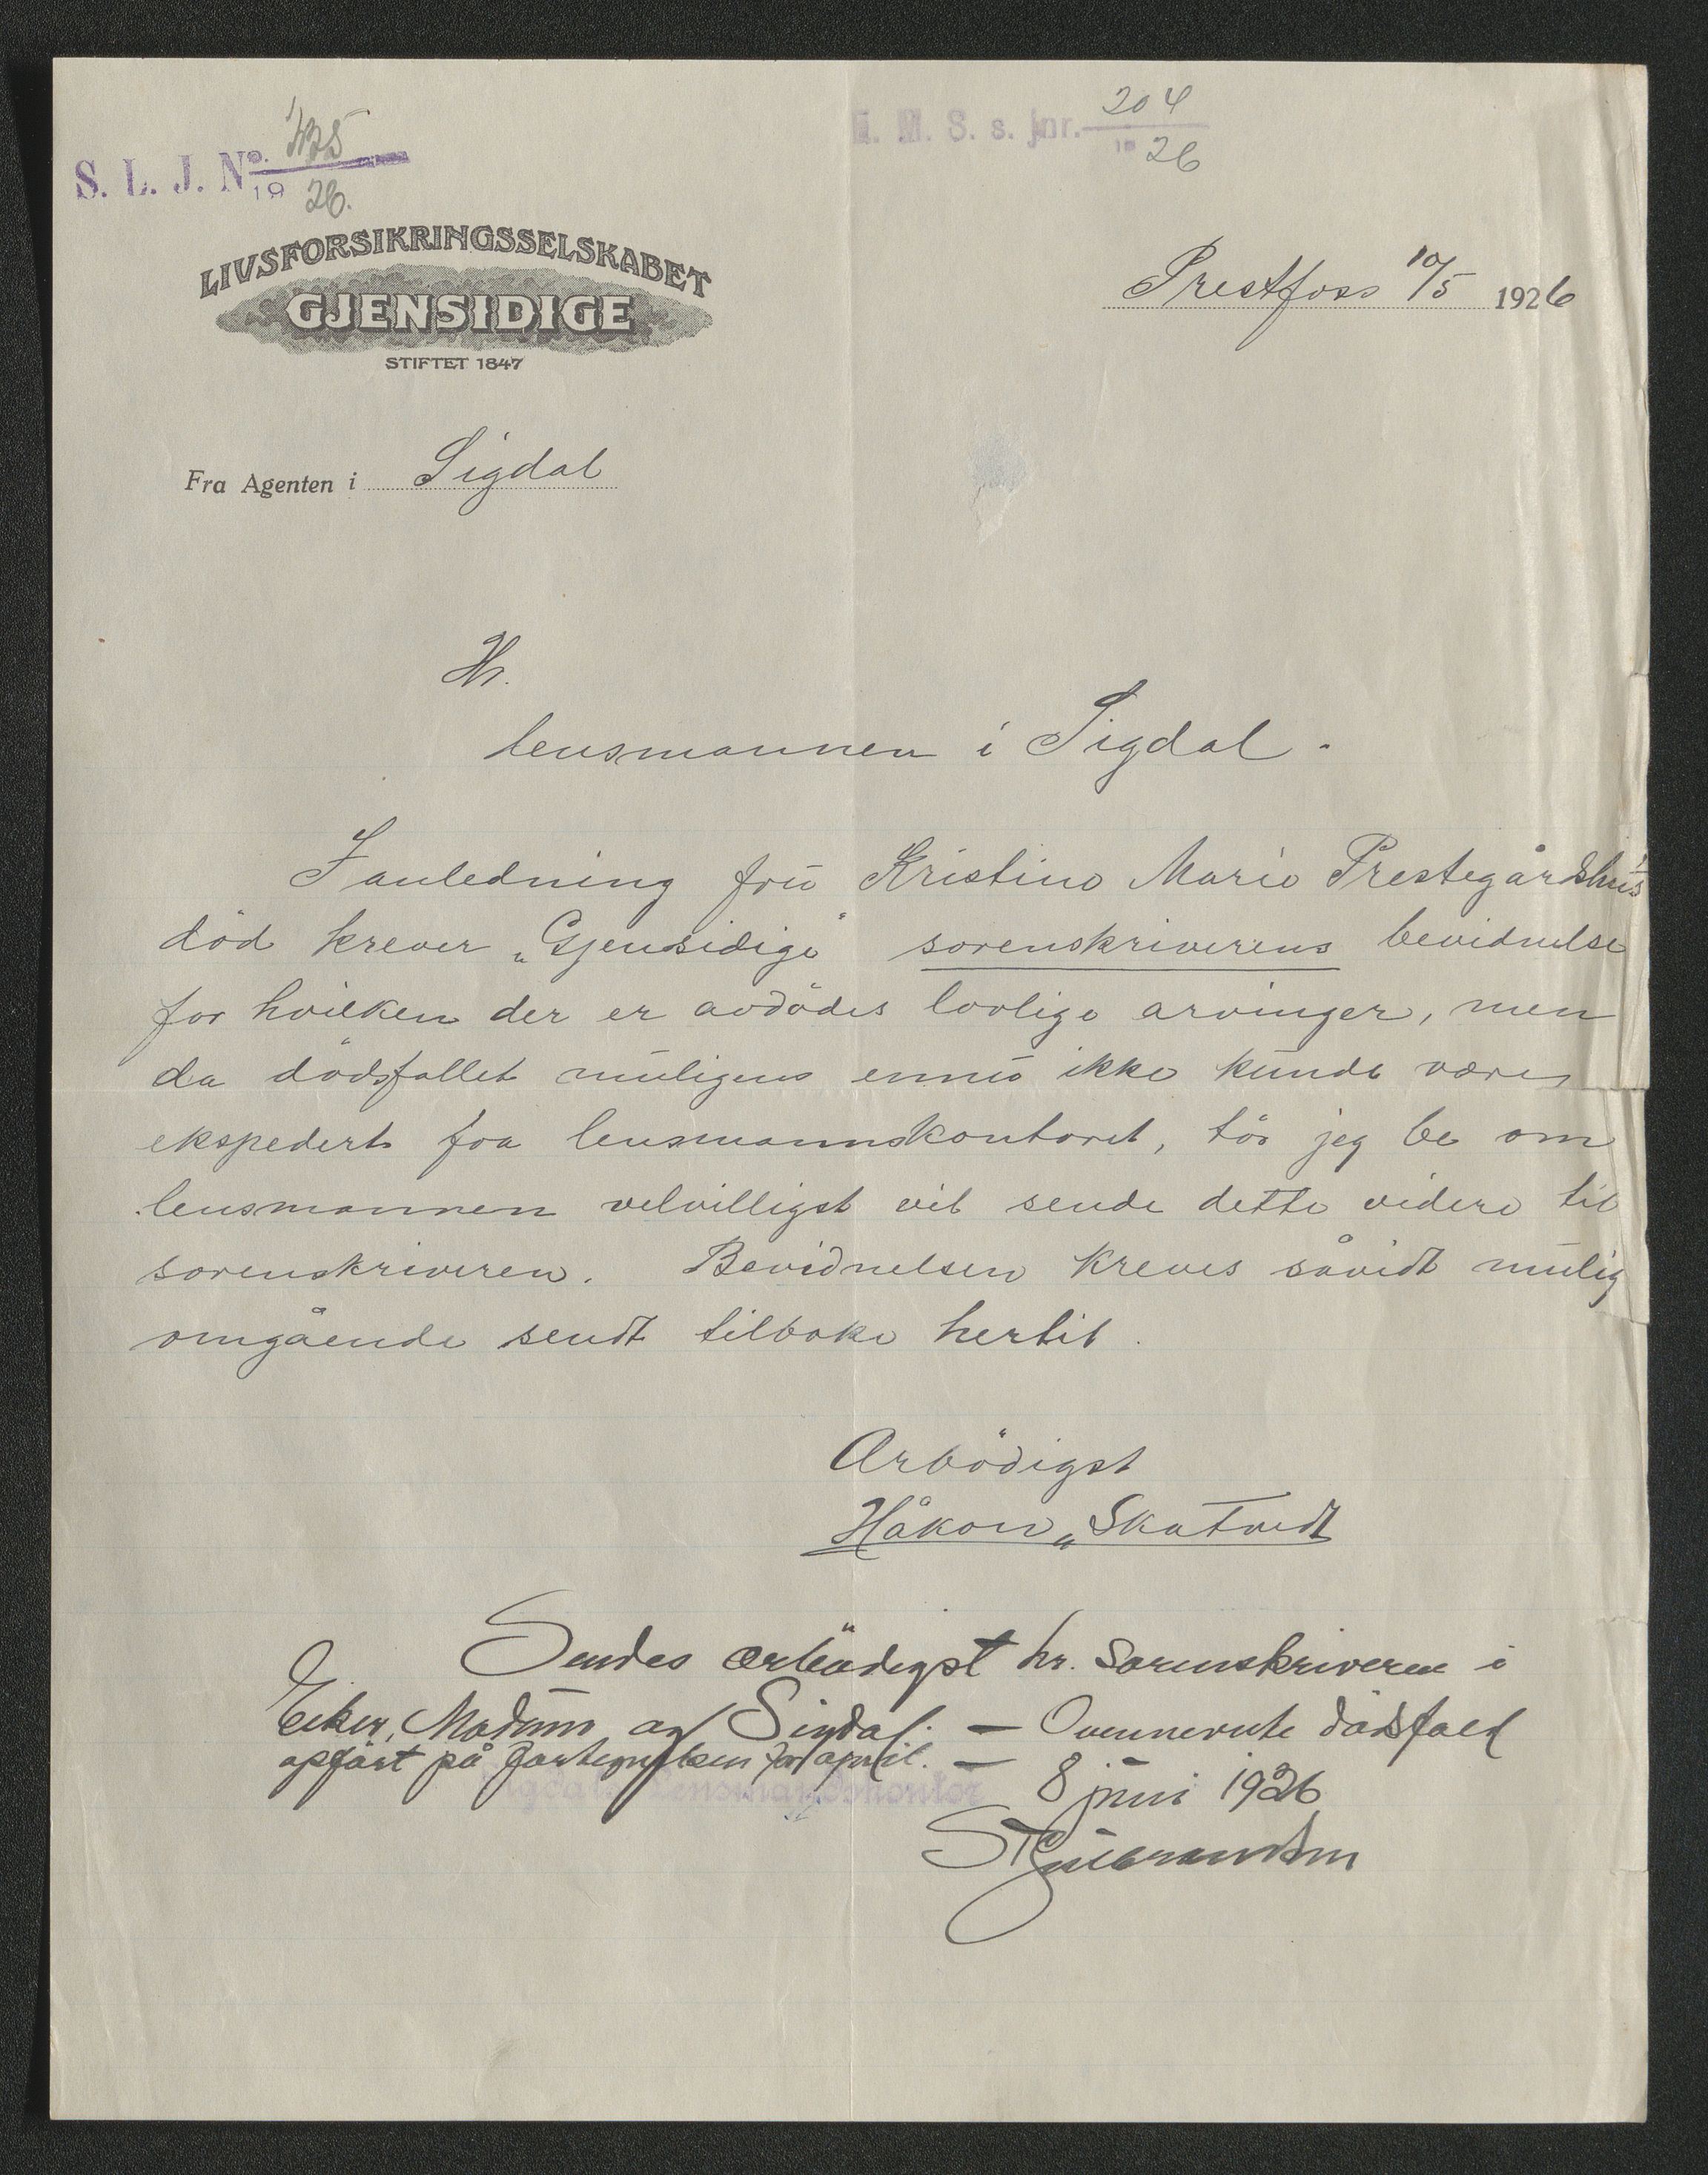 S. L. J. No. 425
19 26.
E. M. S. s. jnr. 204
19 26
LIVSFORSIKRINGSSELSKABET
GJENSIDIGE
STIFTET 1847
Prestfoss 10/5 1926
Fra Agenten i Sigdal
Hr.
lensmannen i Sigdal.
I anledning fru Kristine Marie Prestegårdshus's
död krever „Gjensidige" sorenskriverens bevidnelse
for hvilken der er avdödes lovlige arvinger, men
da dödsfallet muligens ennu ikke kunde være
ekspedert fra lensmannskontoret, tör jeg be om
lensmannen velvilligst vil sende dette videre til
sorenskriveren. Bevidnelsen kreves såvidt mulig
omgående sendt tilbake hertil.
Ærbödigst
Håkon Skatvedt
Sendes ærbödigst hr. sorenskriveren i
Eiker, Modum og Sigdal. — Ovennevnte dödsfald
opfört på fortegnelsen for april. —
Sigdal Lensmandskontor 8 juni 1926
S Gulbrandsen